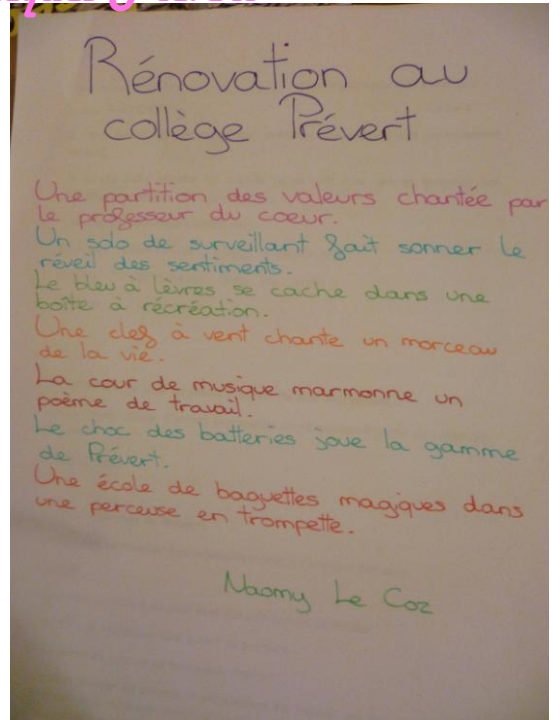 Rénovation au
collège Prévert
Une partition des valeurs chantée par
le professeur du coeur.
Un solo de surveillant fait sonner le
réveil des sentiments.
Le bleu à lèvres se cache dans une
boîte à récréation.
Une clef à vent chante un morceau
de la vie.
La cour de musique marmonne un
poème de travail.
Le choc des batteries joue la gamme
de Prévert.
Une école de baguettes magiques dans
une perceuse en trompette.
Naomy Le Coz